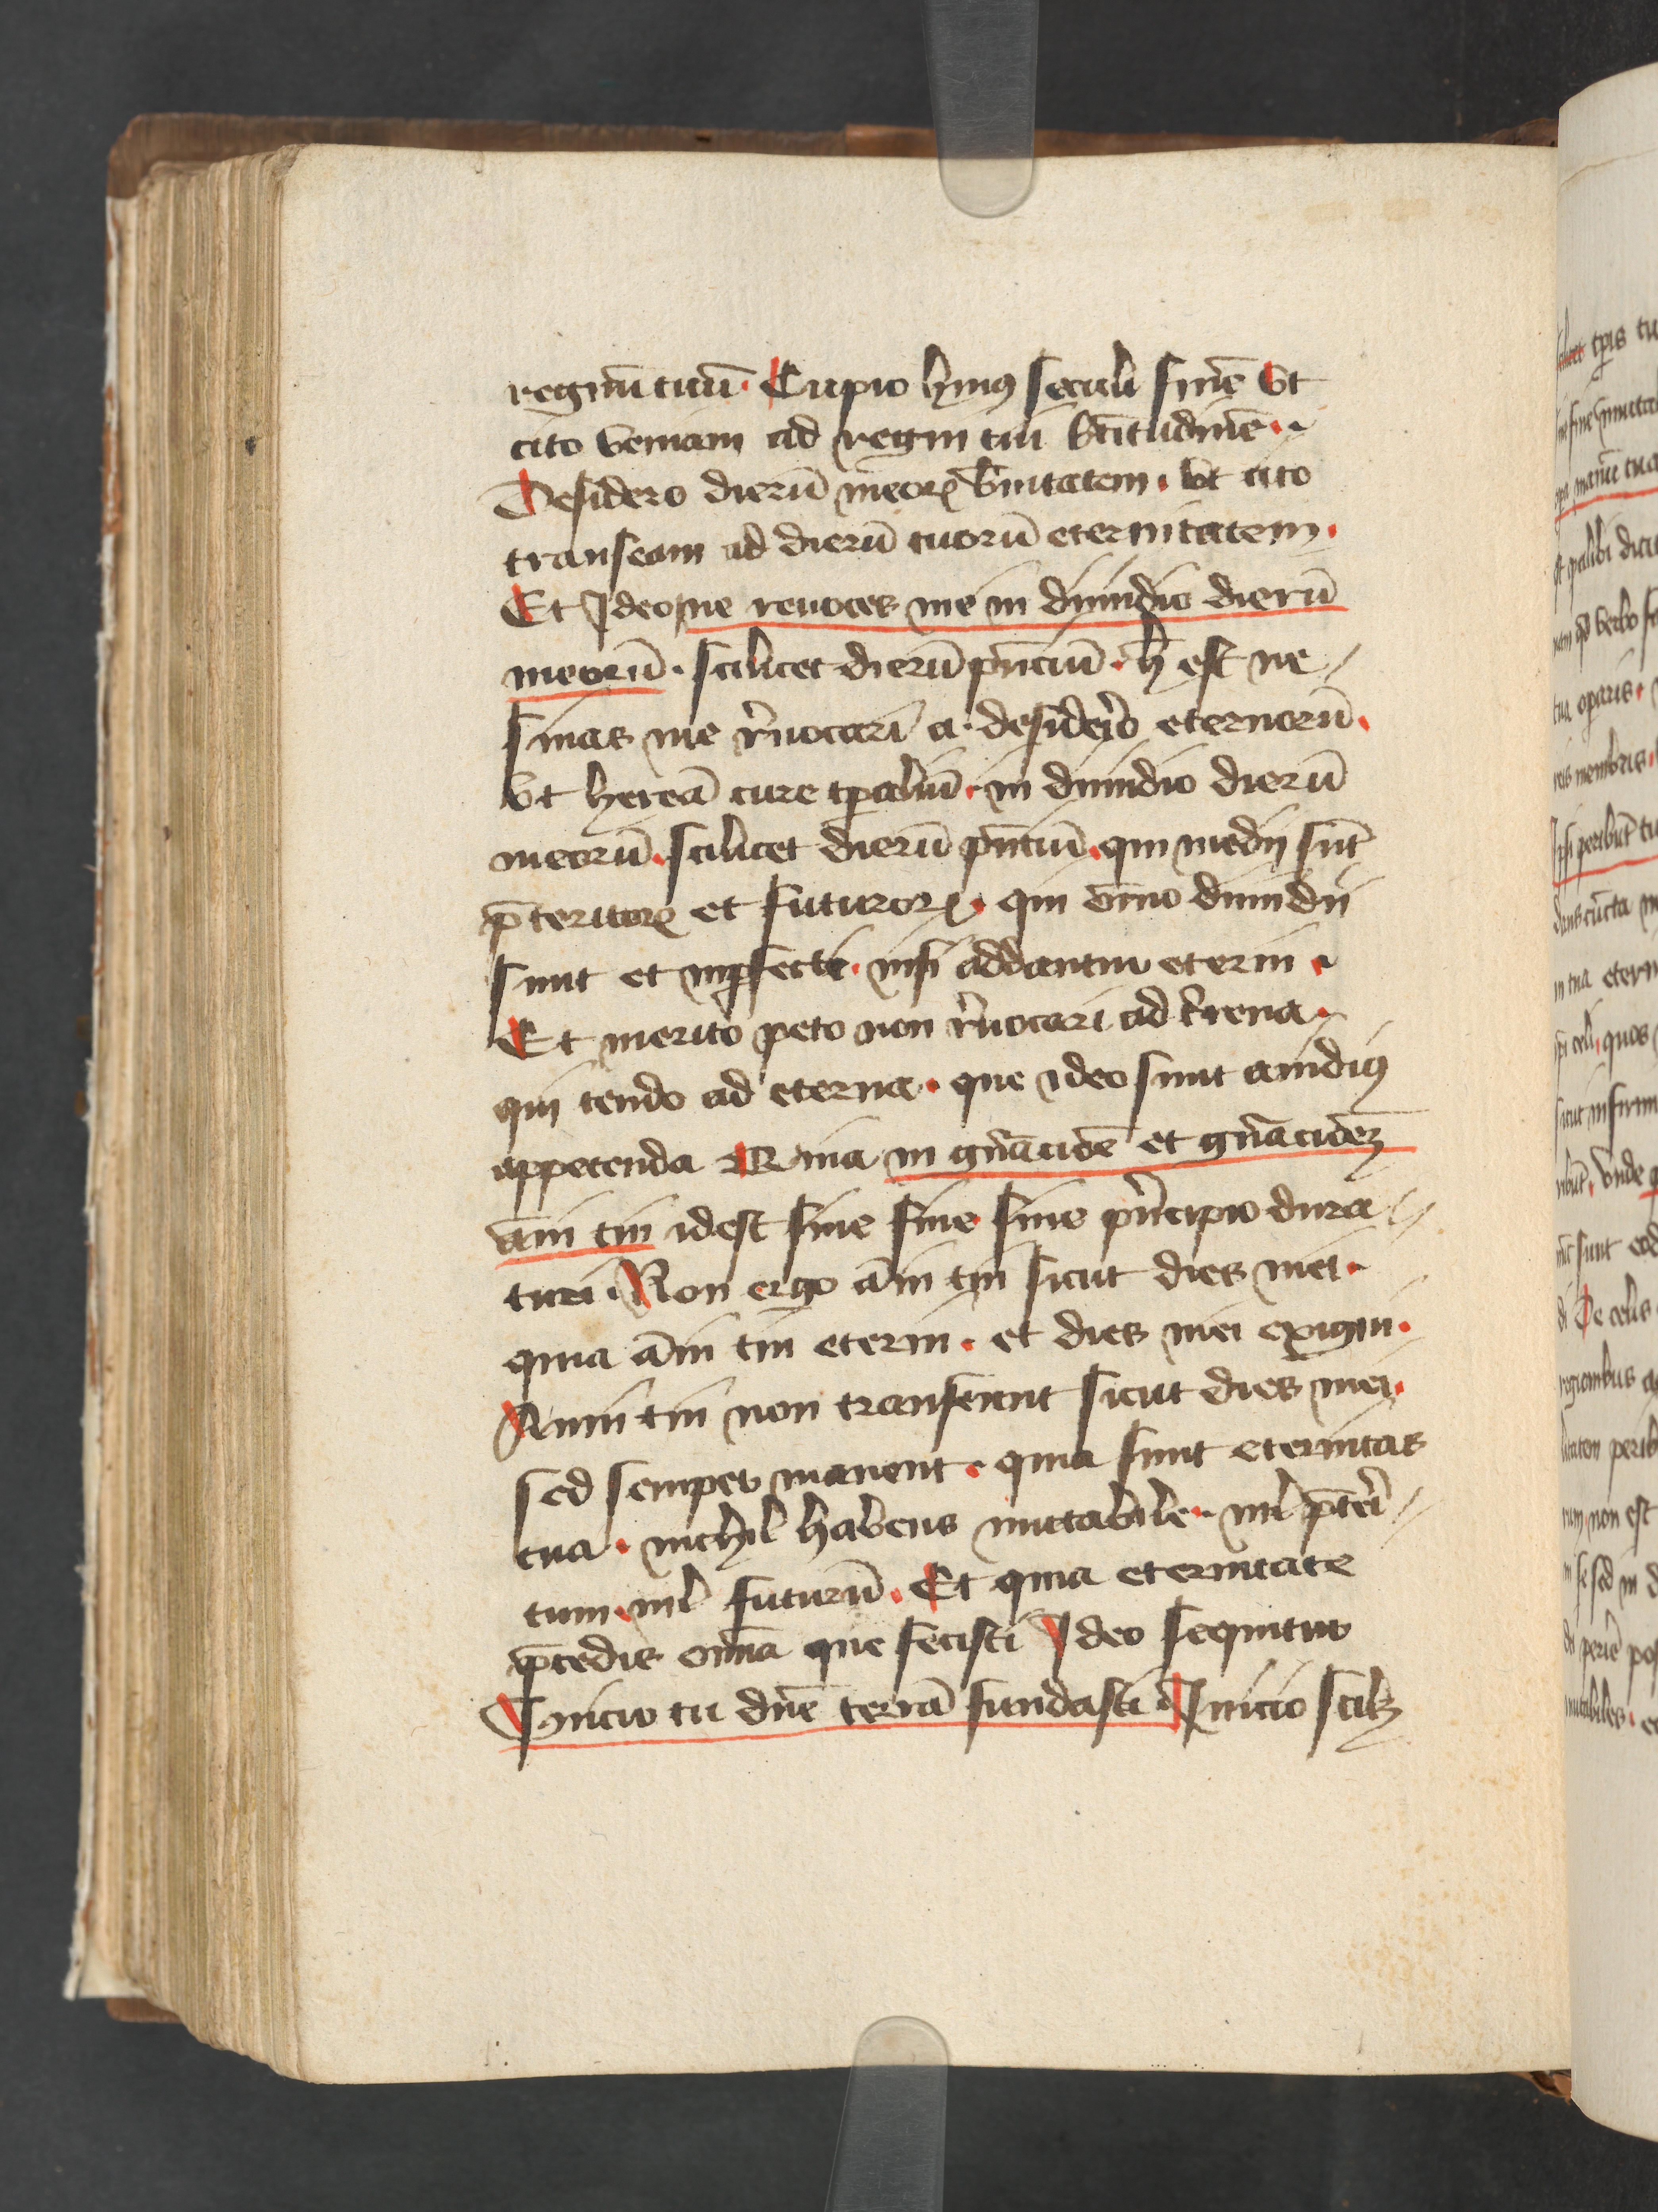 regnū tuū. Cupio huiꝰ seculi finē vt
cito veniam ad regni tui btītudinē.
Desidero dierū meoꝝ breuitatem. vt cito
transeam ad dierū tuorū eternitatem.
Et Ideo ne reuoces me in dimidio dierū
meorū. scilicet dierū pn̄ciū. h̄ est ne
sinas me reuocari a desiderio eternorū.
vt heream cure tꝑaliū. in dimidio dierū
meorū. scilicet dierū pn̄ciū. qui medij sūt
p̄teritoꝝ et futuroꝝ. qui om̄o dimidij
sunt et inꝑfecti. nisi addantur eterni.
Et merito peto non reuocari ad trena.
qui tendo ad eterna. que ideo sunt auidiꝰ
appetenda Quia in gn̄acōē et gn̄acōēꝫ
ām tui idest sine fine sine principio dura
turi. Non ergo ām tui sicut dies mei.
quia ām tui eterni. et dies mei exigui.
Anni tui non transeunt sicut dies mei.
sed semper manent. quia sunt eternitas
tua. nichil habens mutabile. nil p̄teri
tum. nil futurū. Et quia eternitate
p̄cedis omīa que fecisti Ideo sequitur
Inicio tu dn̄e terrā fundasti. Inicio scilꝫ